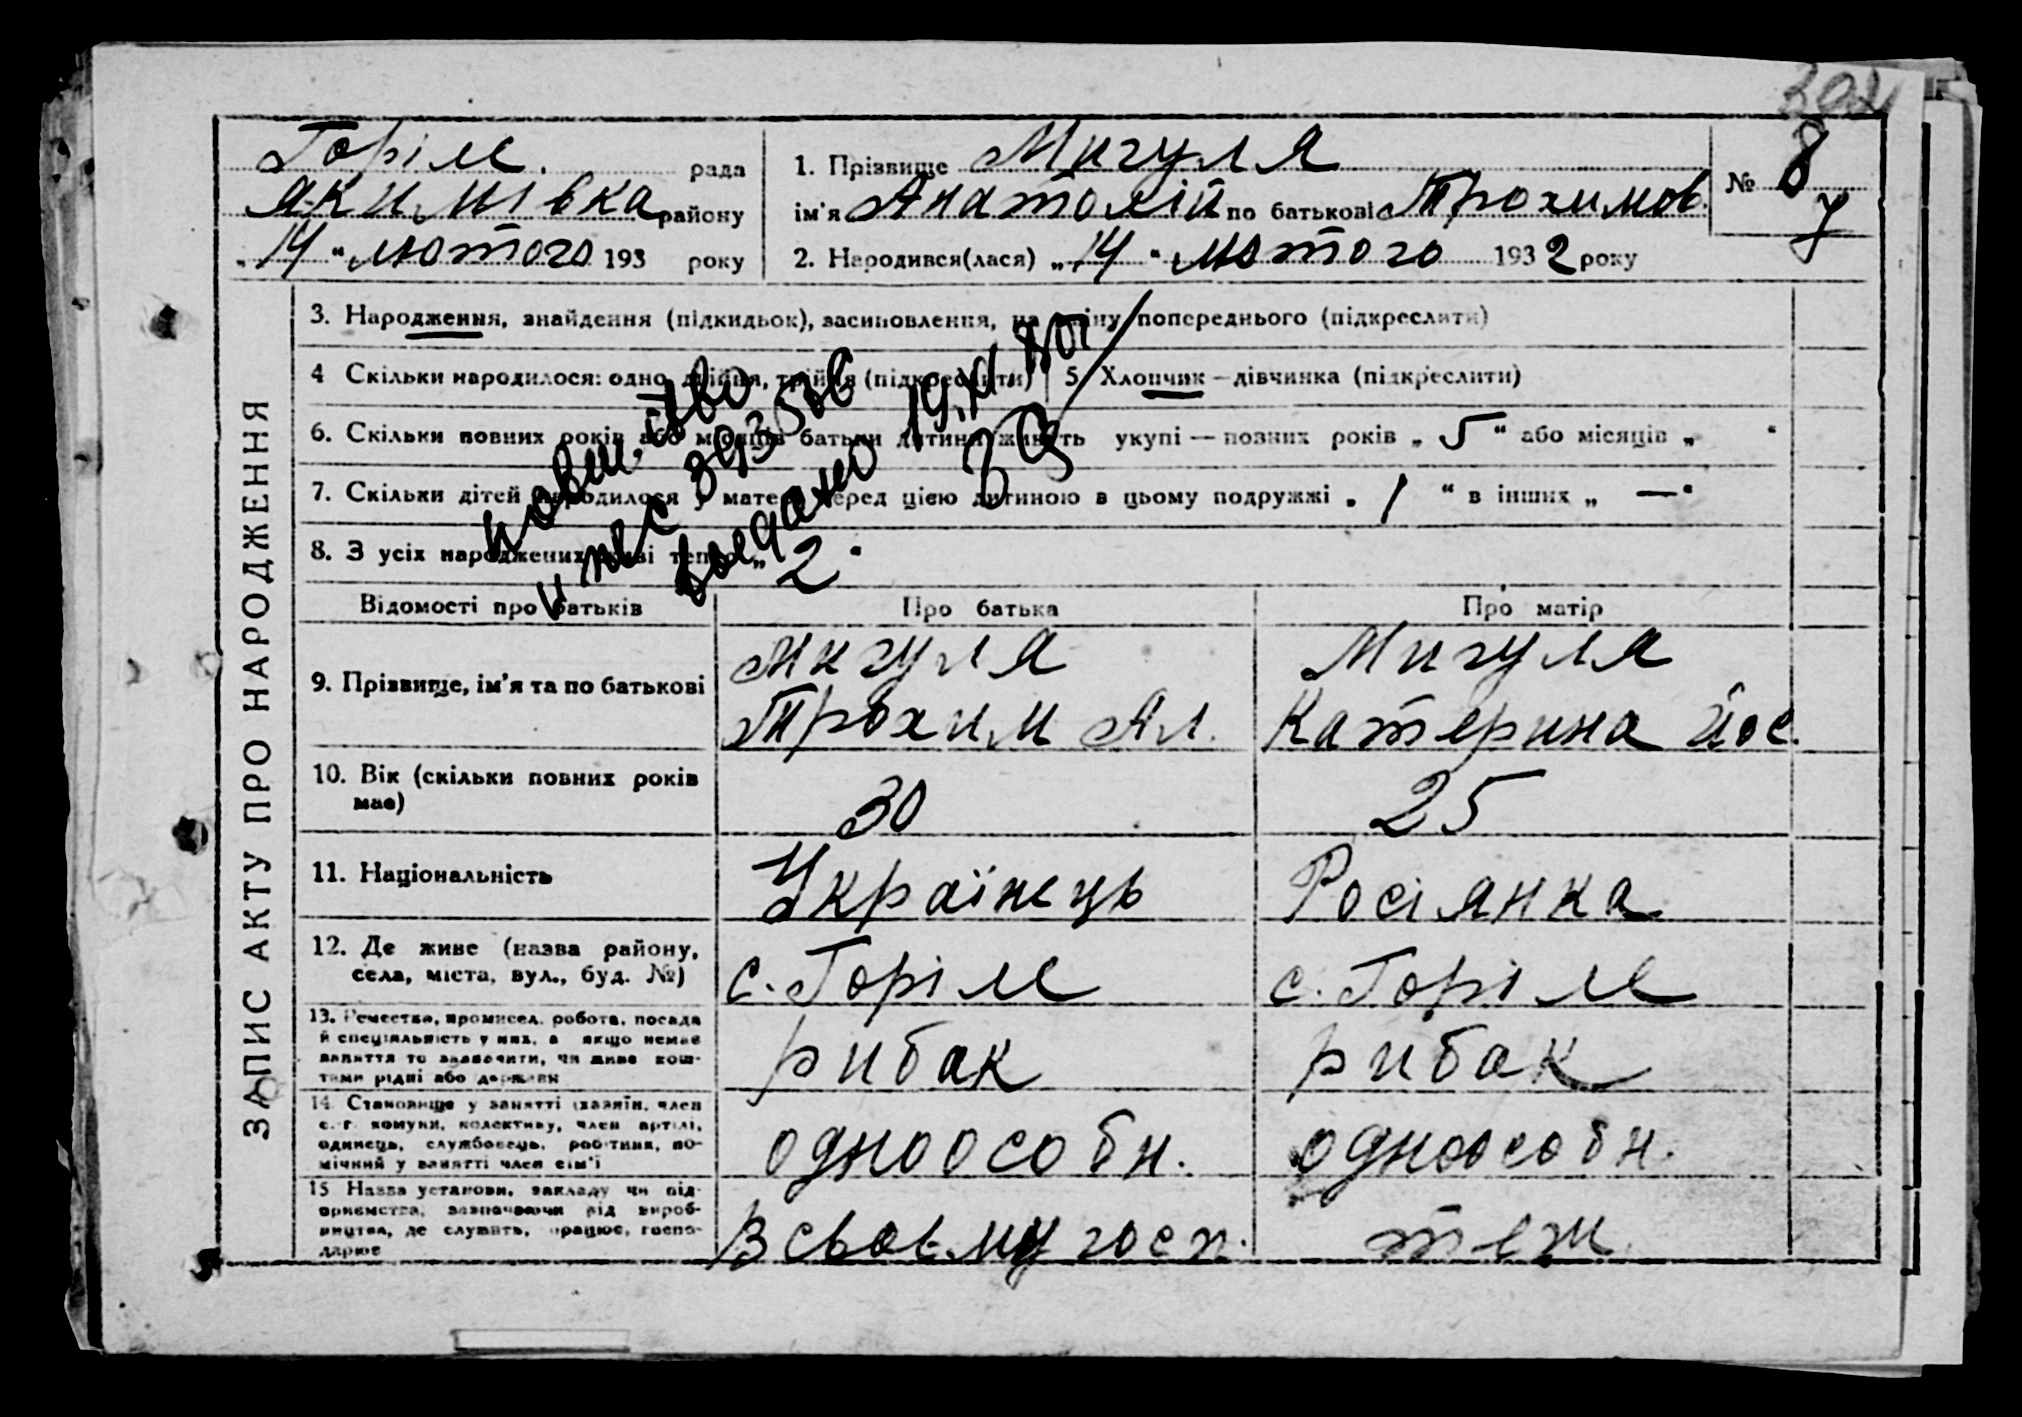 304
Горіле рада
Якимівка району
„14“ лютого 193 року
1. Прізвище Мигуля
ім'я Анатолій по батькові Трохимов.
2. Народився(лася) „14“ лютого 1932 року
№ 8
ЗАПИС АКТУ ПРО НАРОДЖЕННЯ
3. Народження, знайдення (підкидьок), засиновлення, на зміну попереднього (підкреслити)
4 Скільки народилося: одно, двійня, трійня (підкреслити)
5. Хлопчик — дівчинка (підкреслити)
6. Скільки повних років або місяців батьки дитини живуть укупі — повних років „5“ або місяців „ “
7. Скільки дітей народилося у матери перед цією дитиною в цьому подружжі „1“ в інших „—“
8. З усіх народжених живі тепер „2“
выдано 19.XI
Відомості про батьків
Про батька
Про матір
9. Прізвище, ім'я та по батькові
Мигуля
Трохим Ял.
Мигуля
Катерина Йос.
10. Вік (скільки повних років
має)
30
25
11. Національність
Українець
Росіянка
12. Де живе (назва району,
села, міста, вул., буд. №)
с. Горіле
с. Горіле
13. Ремество, промисел, робота, посада
й спеціяльність у них, а якщо немає
заняття то зазначити, чи живе кош-
тами рідні або держави
рибак
рибак
14. Становище у занятті (хазяїн, член
с.-г. комуни, колективу, член артілі,
одинець, службовець, робітник, по-
мічний у занятті член сім'ї
одноособн.
одноособн.
15 Назва установи, закладу чи під-
приємства, зазначаючи рід вироб-
ництва, де служить, працює, госпо-
дарює
В своєму госп.
теж